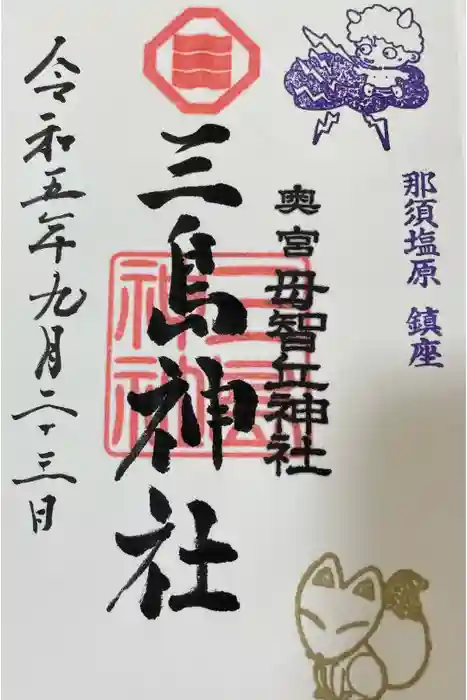 那須塩原 鎮座
奥宮 母智丘神社
三島神社
令和五年九月二十三日
三島
神社